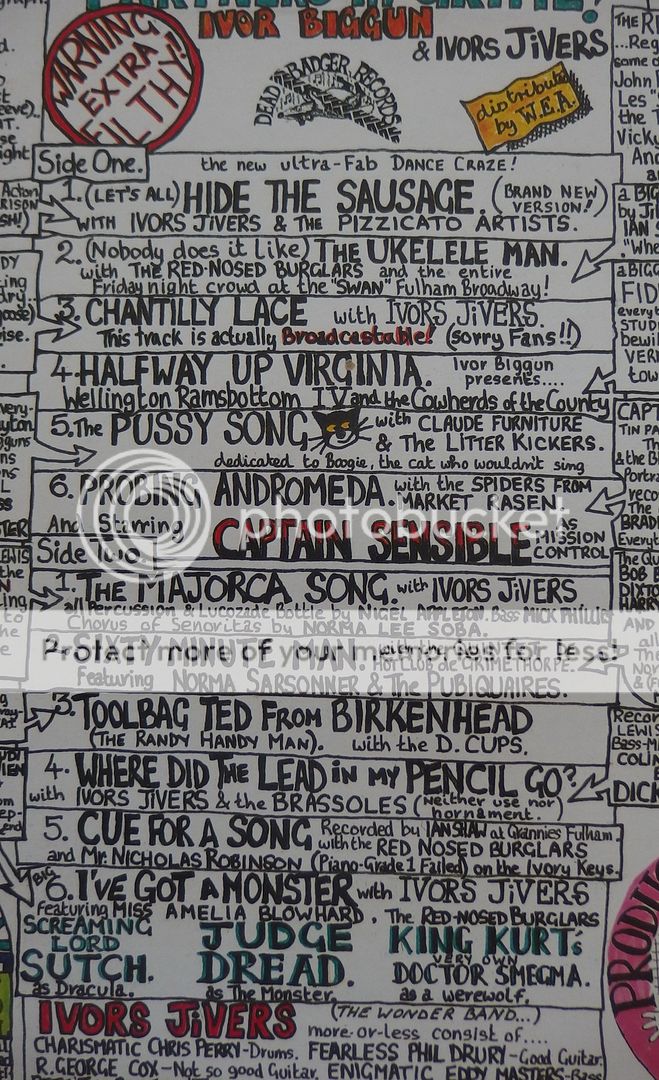 PARTNERS IN GRIME!
IVOR BIGGUN
& IVORS JiVERS
WARNING
EXTRA
FILTHY
DEAD BADGER RECORDS
distributed
by W.E.A.
Side One.
the new ultra-Fab DANCE CRAZE!
1. (LET'S ALL) HIDE THE SAUSAGE. (BRAND NEW VERSION!)
WITH IVORS JIVERS & THE PIZZICATO ARTISTS.
2. (Nobody does it like) THE UKELELE MAN.
with THE RED-NOSED BURGLARS and the entire
Friday night crowd at the "SWAN" Fulham Broadway!
3. CHANTILLY LACE with IVORS JIVERS.
This track is actually Broadcastable! (sorry Fans!!)
4. HALFWAY UP VIRGINIA. Ivor Biggun presents....
Wellington Ramsbottom IV and the Cowherds of the County
5. The PUSSY SONG with CLAUDE FURNITURE
& THE LITTER KICKERS.
dedicated to Boogie, the cat who wouldn't sing
6. PROBING ANDROMEDA. with the SPIDERS FROM
MARKET RASEN
And Starring CAPTAIN SENSIBLE AS MISSION CONTROL
photobucket
Side Two.
1. THE MAJORCA SONG. with IVORS JIVERS
all Percussion & Lucozade Bottle by NIGEL APPLETON. Bass MICK PHILLIPS
Chorus of Senoritas by NORMA LEE SOBA.
2. SIXTY MINUTE MAN. with the
Hot Club de GRIMETHORPE.
Protect more of your memories for less!
Featuring NORMA SARSONNER & The PUBIQUAIRES.
3. TOOLBAG TED FROM BIRKENHEAD
(THE RANDY HANDY MAN). with the D. CUPS.
4. WHERE DID THE LEAD in MY PENCIL GO?
with IVORS JIVERS & the BRASSOLES (Neither use nor hornament.)
5. CUE FOR A SONG Recorded by IAN SHAW at Grannies Fulham
with the RED NOSED BURGLARS
and Mr. NICHOLAS ROBINSON (Piano-Grade 1 Failed) on the Ivory Keys.
6. I'VE GOT A BIG MONSTER with IVORS JIVERS
featuring MISS AMELIA BLOWHARD. The RED-NOSED BURGLARS
SCREAMING LORD SUTCH. as Dracula.
JUDGE DREAD. as The Monster.
KING KURT's VERY OWN DOCTOR SMEGMA. as a werewolf.
IVORS JiVERS (THE WONDER BAND...)
more-or-less consist of....
CHARISMATIC CHRIS PERRY-Drums. FEARLESS PHIL DRURY-Good Guitar.
R.GEORGE COX-Not so good Guitar. ENIGMATIC EDDY MASTERS-Bass